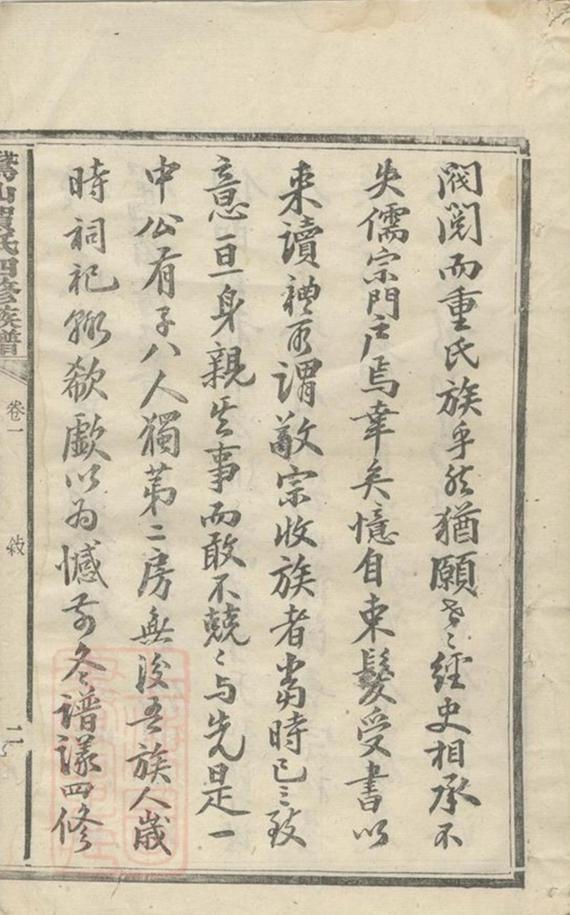 閥閱而重氏族乎然猶願世世經史相承不
失儒宗門戶焉幸矣憶自束髮受書以
來讀禮所謂敬宗收族者當時已三致
意一旦身親其事而敢不兢兢与先是一
中公有子八人獨第二房無後吾族人歲
時祠祀輒欷歔以為憾前冬譜議四修
氏四修族譜
卷一
敘
二